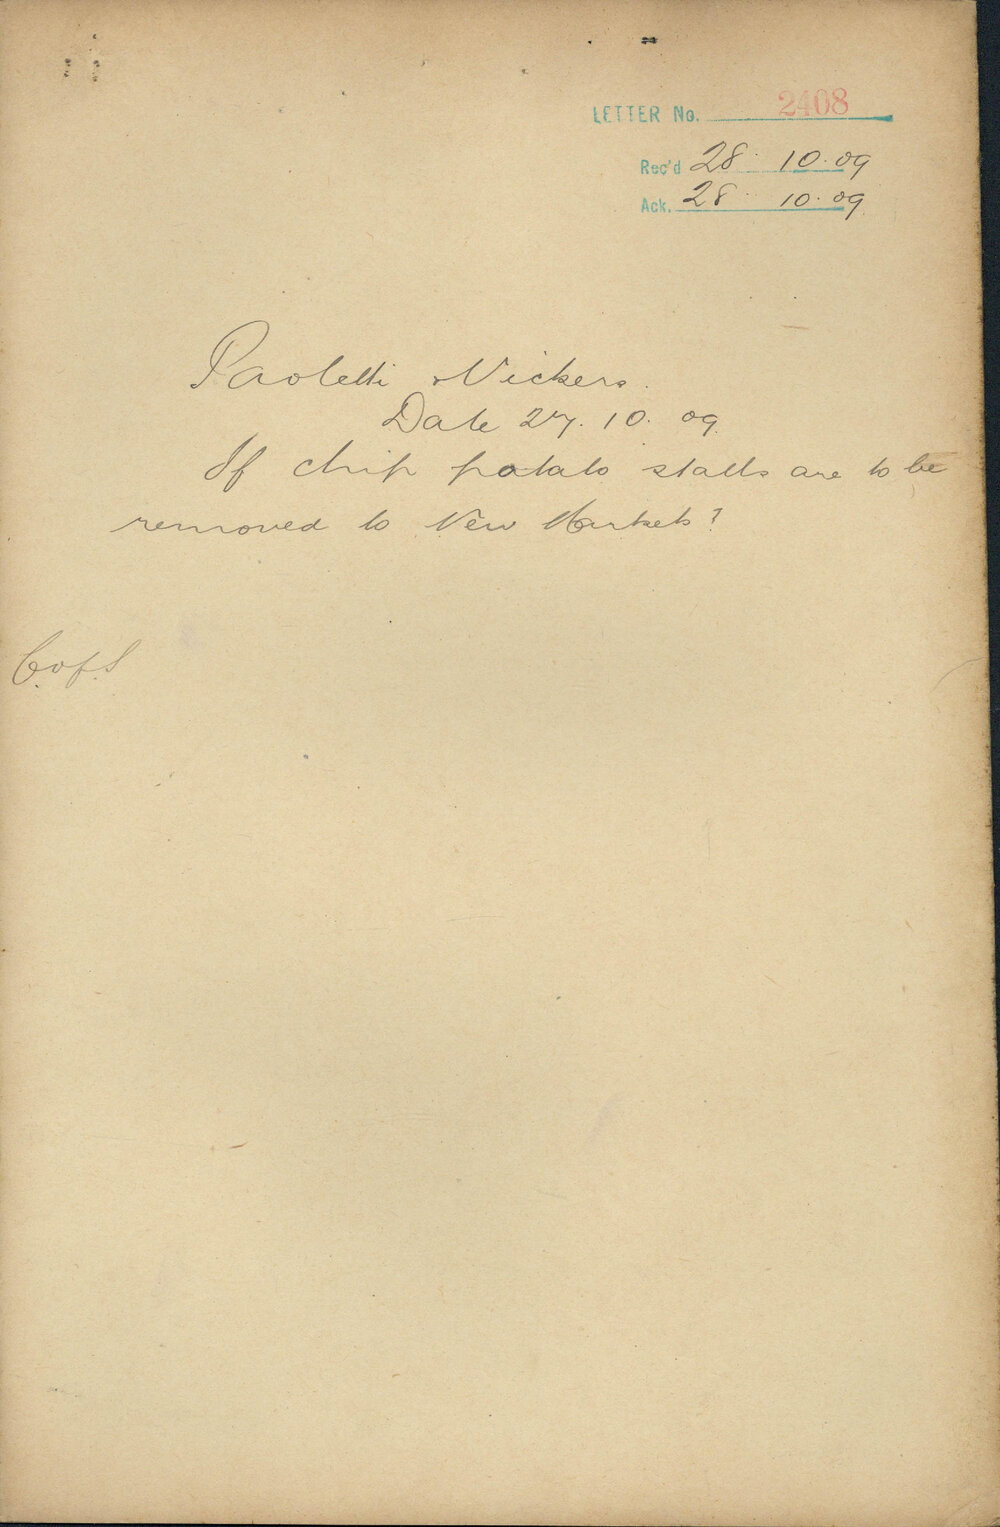 LETTER No. 2408
Rec'd 28. 10. 09
Ack. 28. 10. 09
Paoletti & Vickers.
Date 27. 10. 09
If chip potato stalls are to be
removed to New Markets?
C. of S